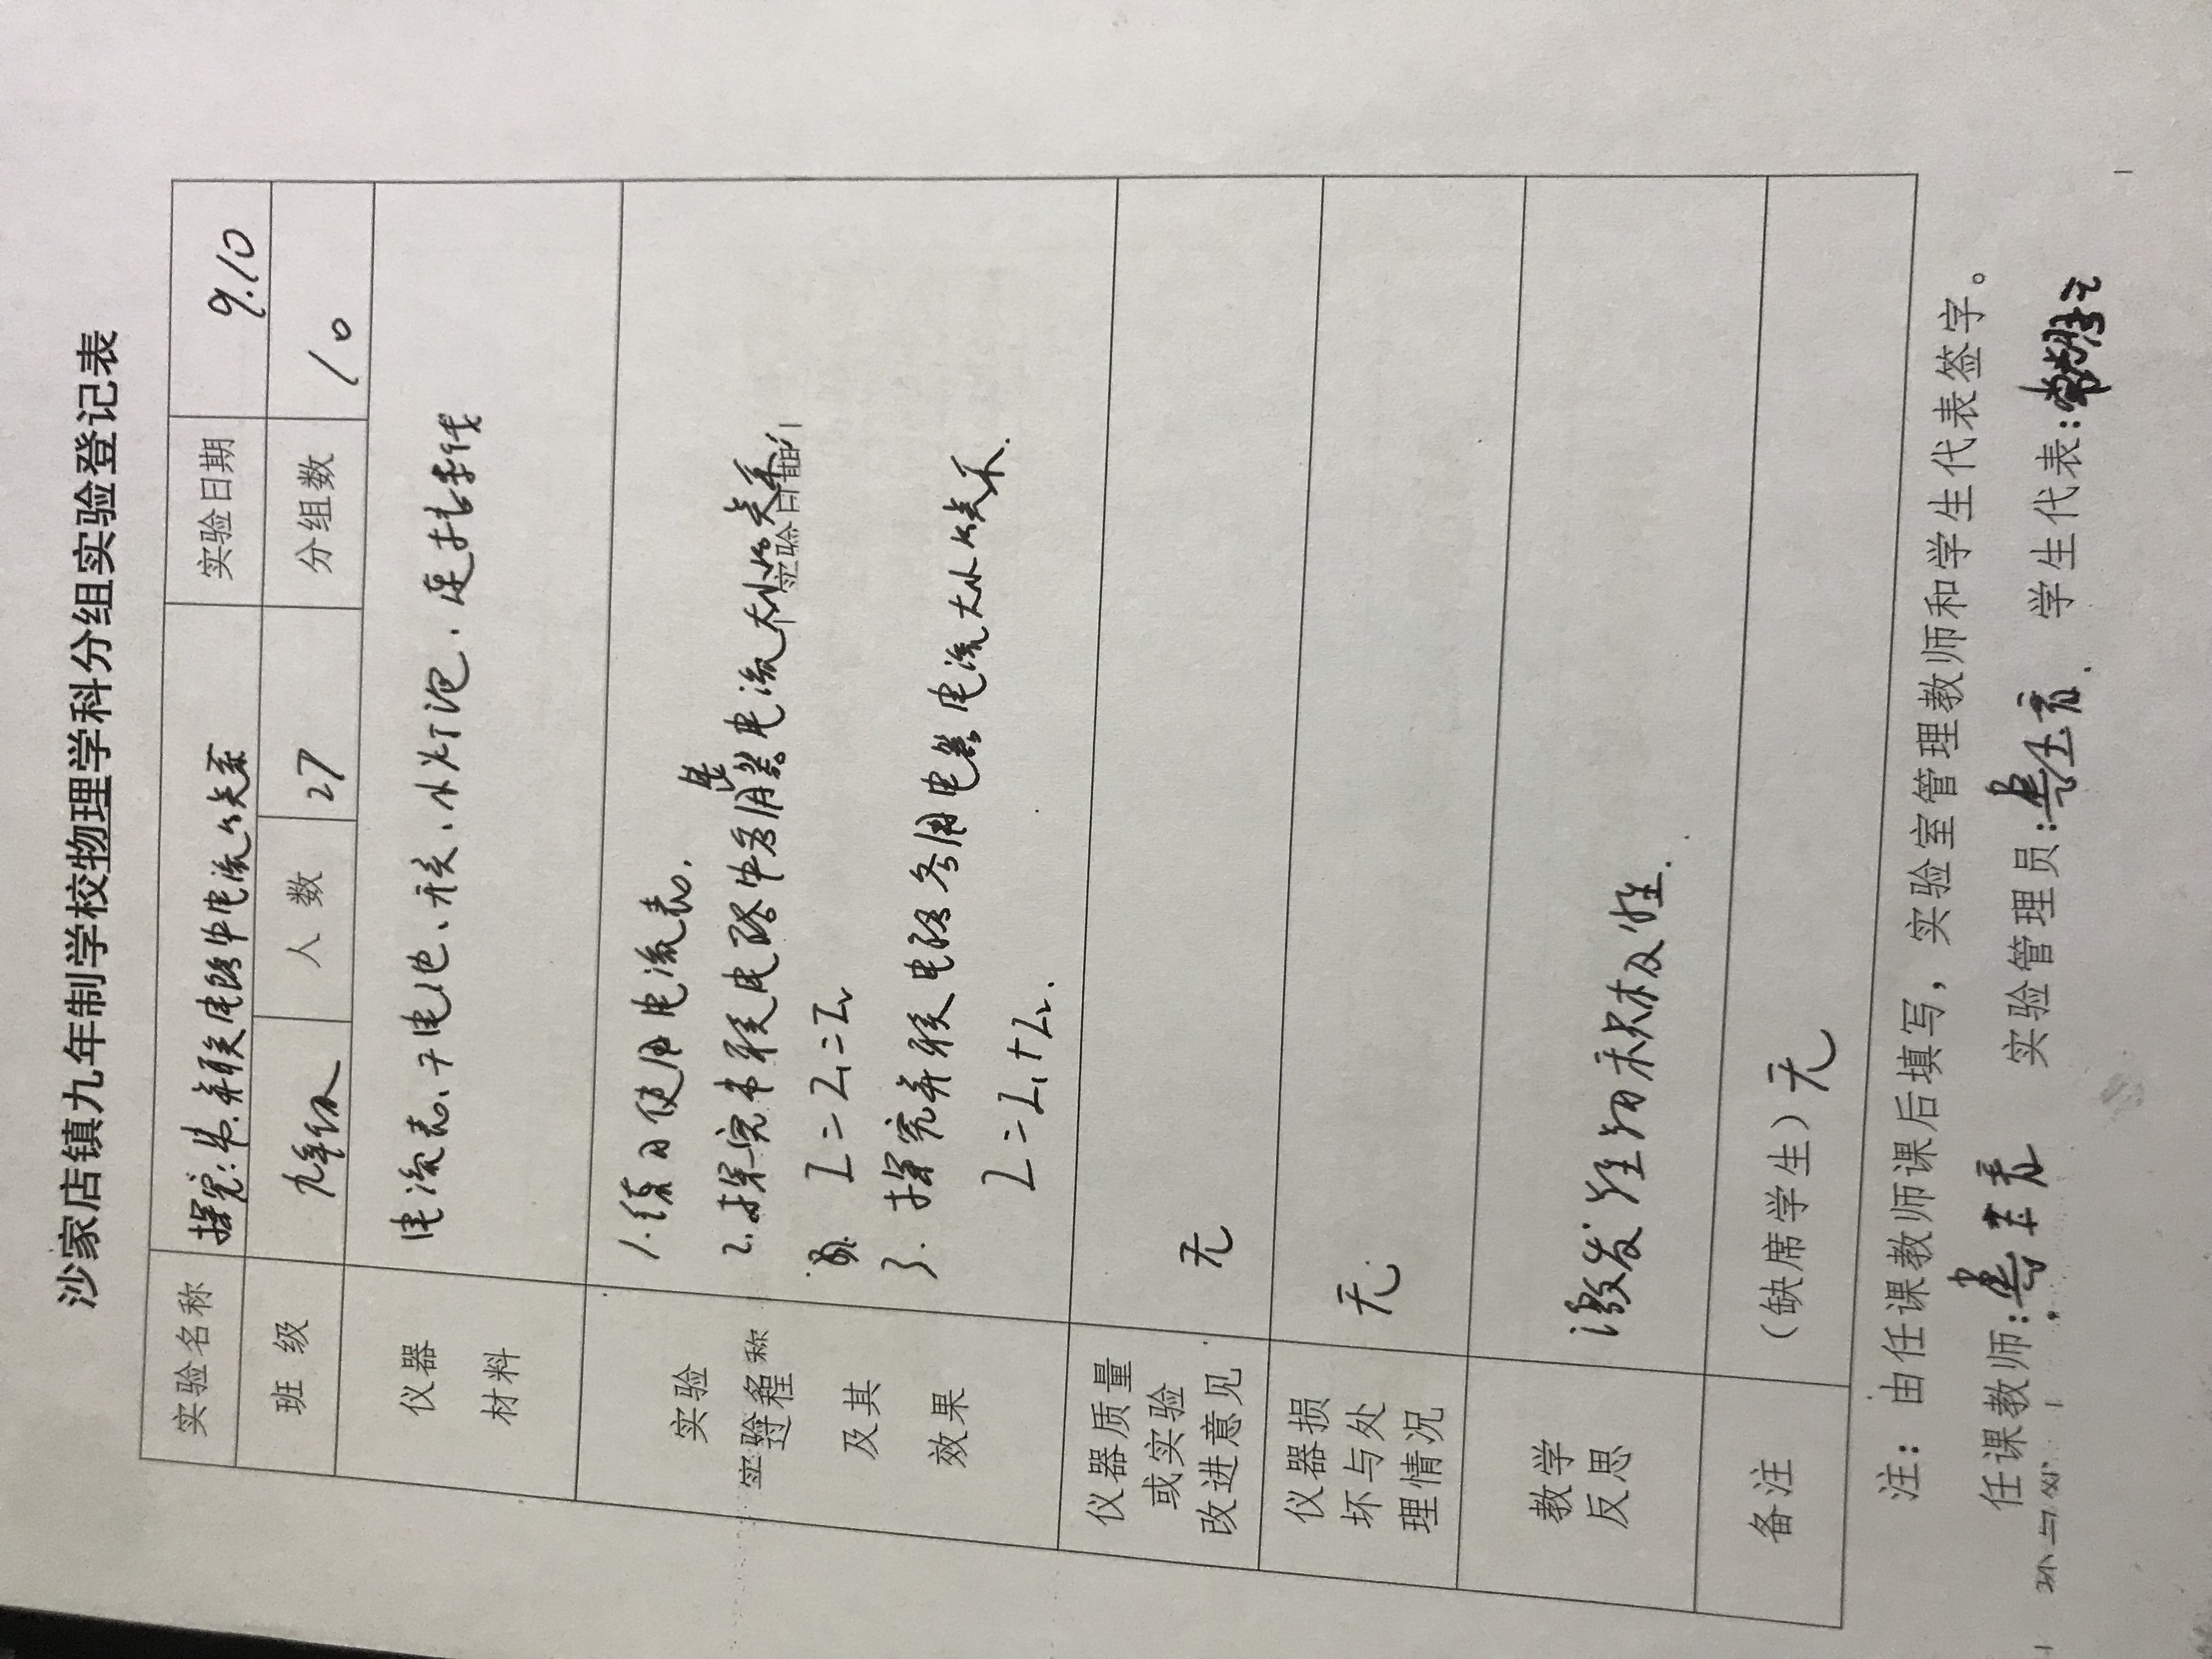 沙家店镇九年制学校物理学科分组实验登记表
实验名称 探究串.并联电路中电流的关系 实验日期 9.10
班 级 九年级 人 数 27 分组数 10
仪器
材料
电流表、干电池、开关、小灯泡.
实验
过程
及其
效果
1.练习使用电流表.
2.探究串联电路中各用电器电流大小的关系
I=I₁=I₂
3. 探究并联电路各用电器电流大小的关系.
I=I₁+I₂.
仪器质量
或实验
改进意见
无
仪器损
坏与处
理情况
无.
教学
反思
激发学习积极性.
备注 (缺席学生) 无
注：由任课教师课后填写，实验室管理教师和学生代表签字。
任课教师: 实验管理员: 学生代表: